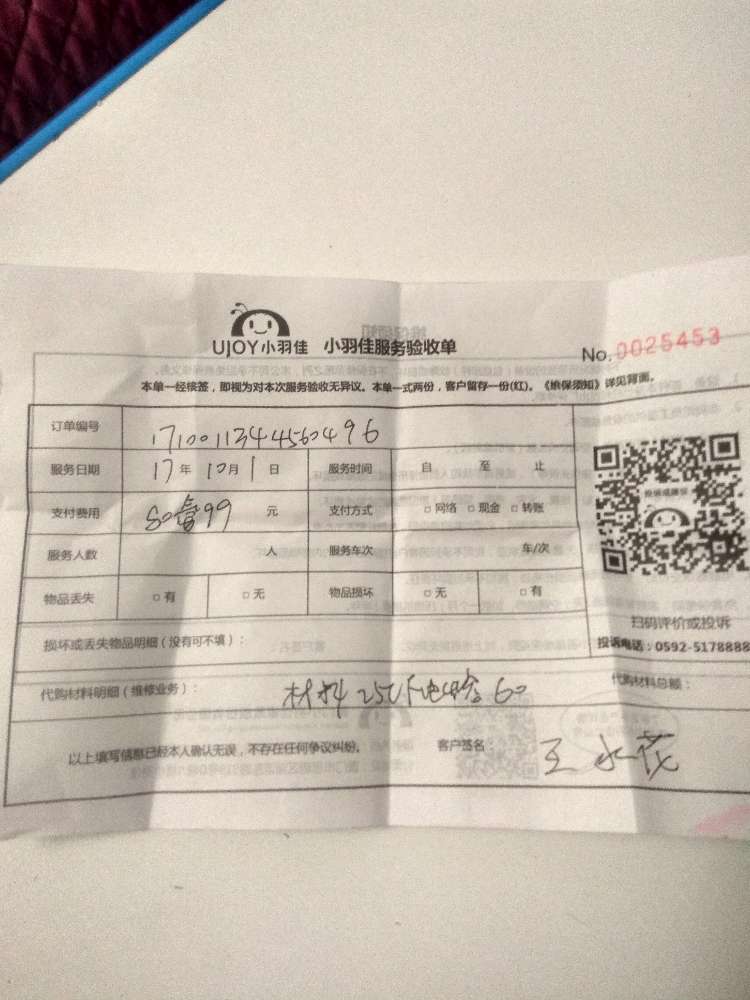 UJOY小羽佳 小羽佳服务验收单
No. 0025453
本单一经接签，即视为对本次服务验收无异议。本单一式两份，客户留存一份(红)。《维保须知》详见背面。
订单编号
服务日期 17 年 10 月 1 日 服务时间 自 至 止
支付费用 99 元 支付方式 □ 网络 □ 现金 □ 转账
服务人数 人 服务车次 车/次
物品丢失 □ 有 □ 无 物品损坏 □ 无 □ 有
扫码评价或投诉
投诉电话：0592-5178888
损坏或丢失物品明细（没有可不填）：
代购材料明细（维修业务）： 材料 60 代购材料总额：
以上填写信息已经本人确认无误，不存在任何争议纠纷。 客户签名 王水花